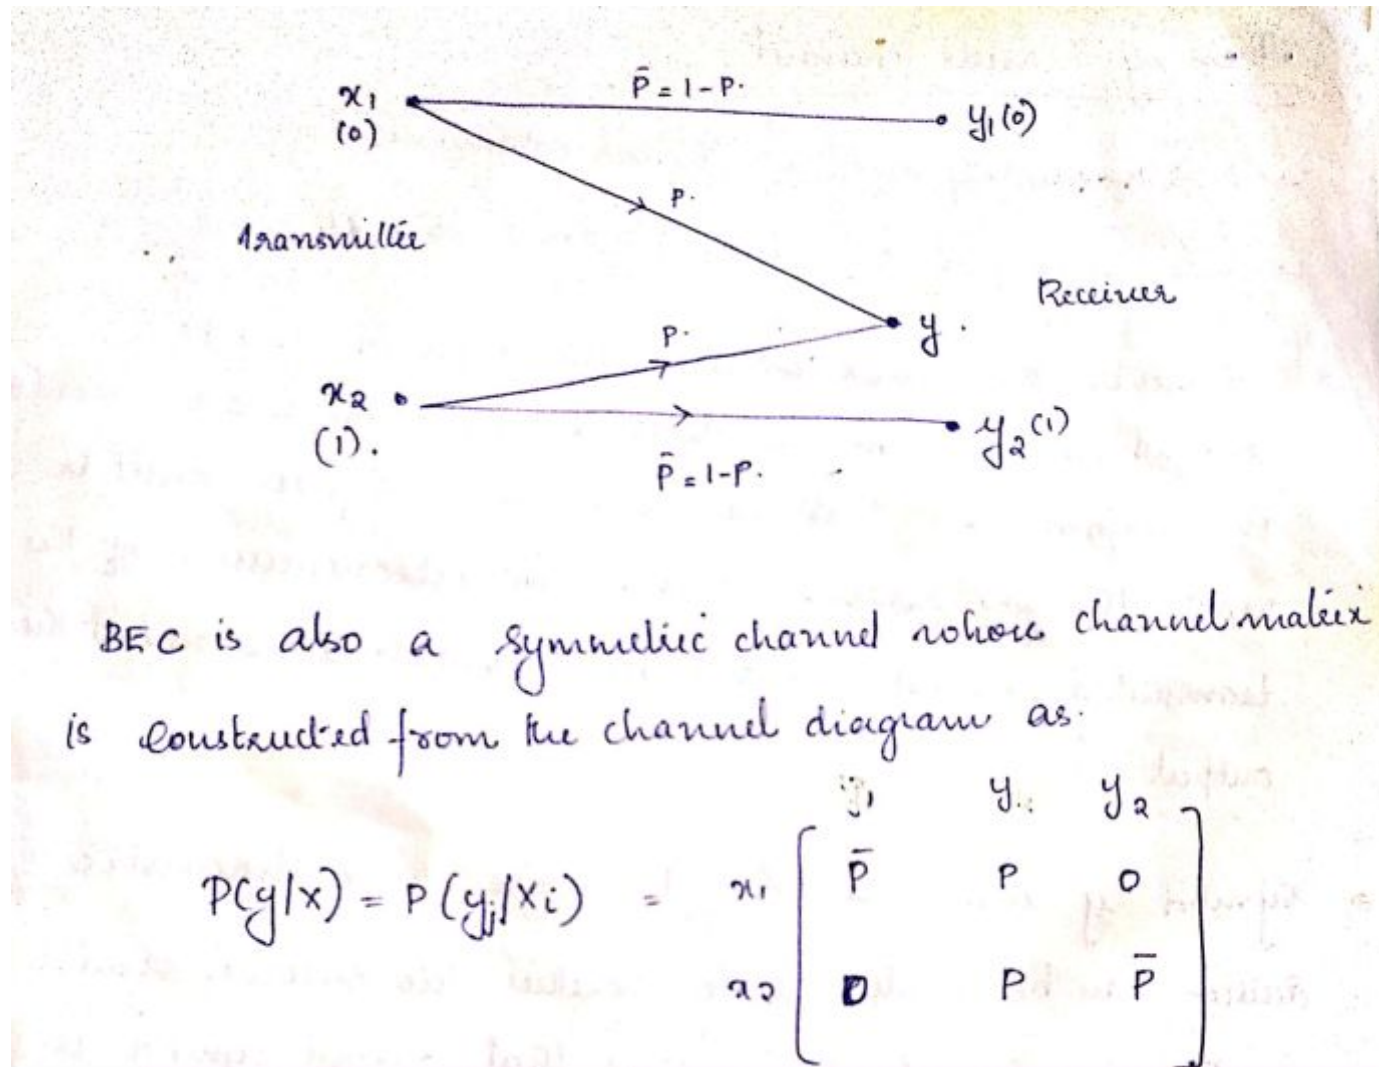 x₁ P̄ = 1 - P.
(0) y₁(0)
P.
Transmitter
Receiver
P. y.
x₂ y₂(1)
(1).
P̄ = 1-P.
BEC is also a Symmetric channel whose channel matrix
is constructed from the channel diagram as.
y₁ y y₂
P(y/x) = P(yⱼ/xᵢ) = x₁ P̄ P 0
x₂ 0 P P̄